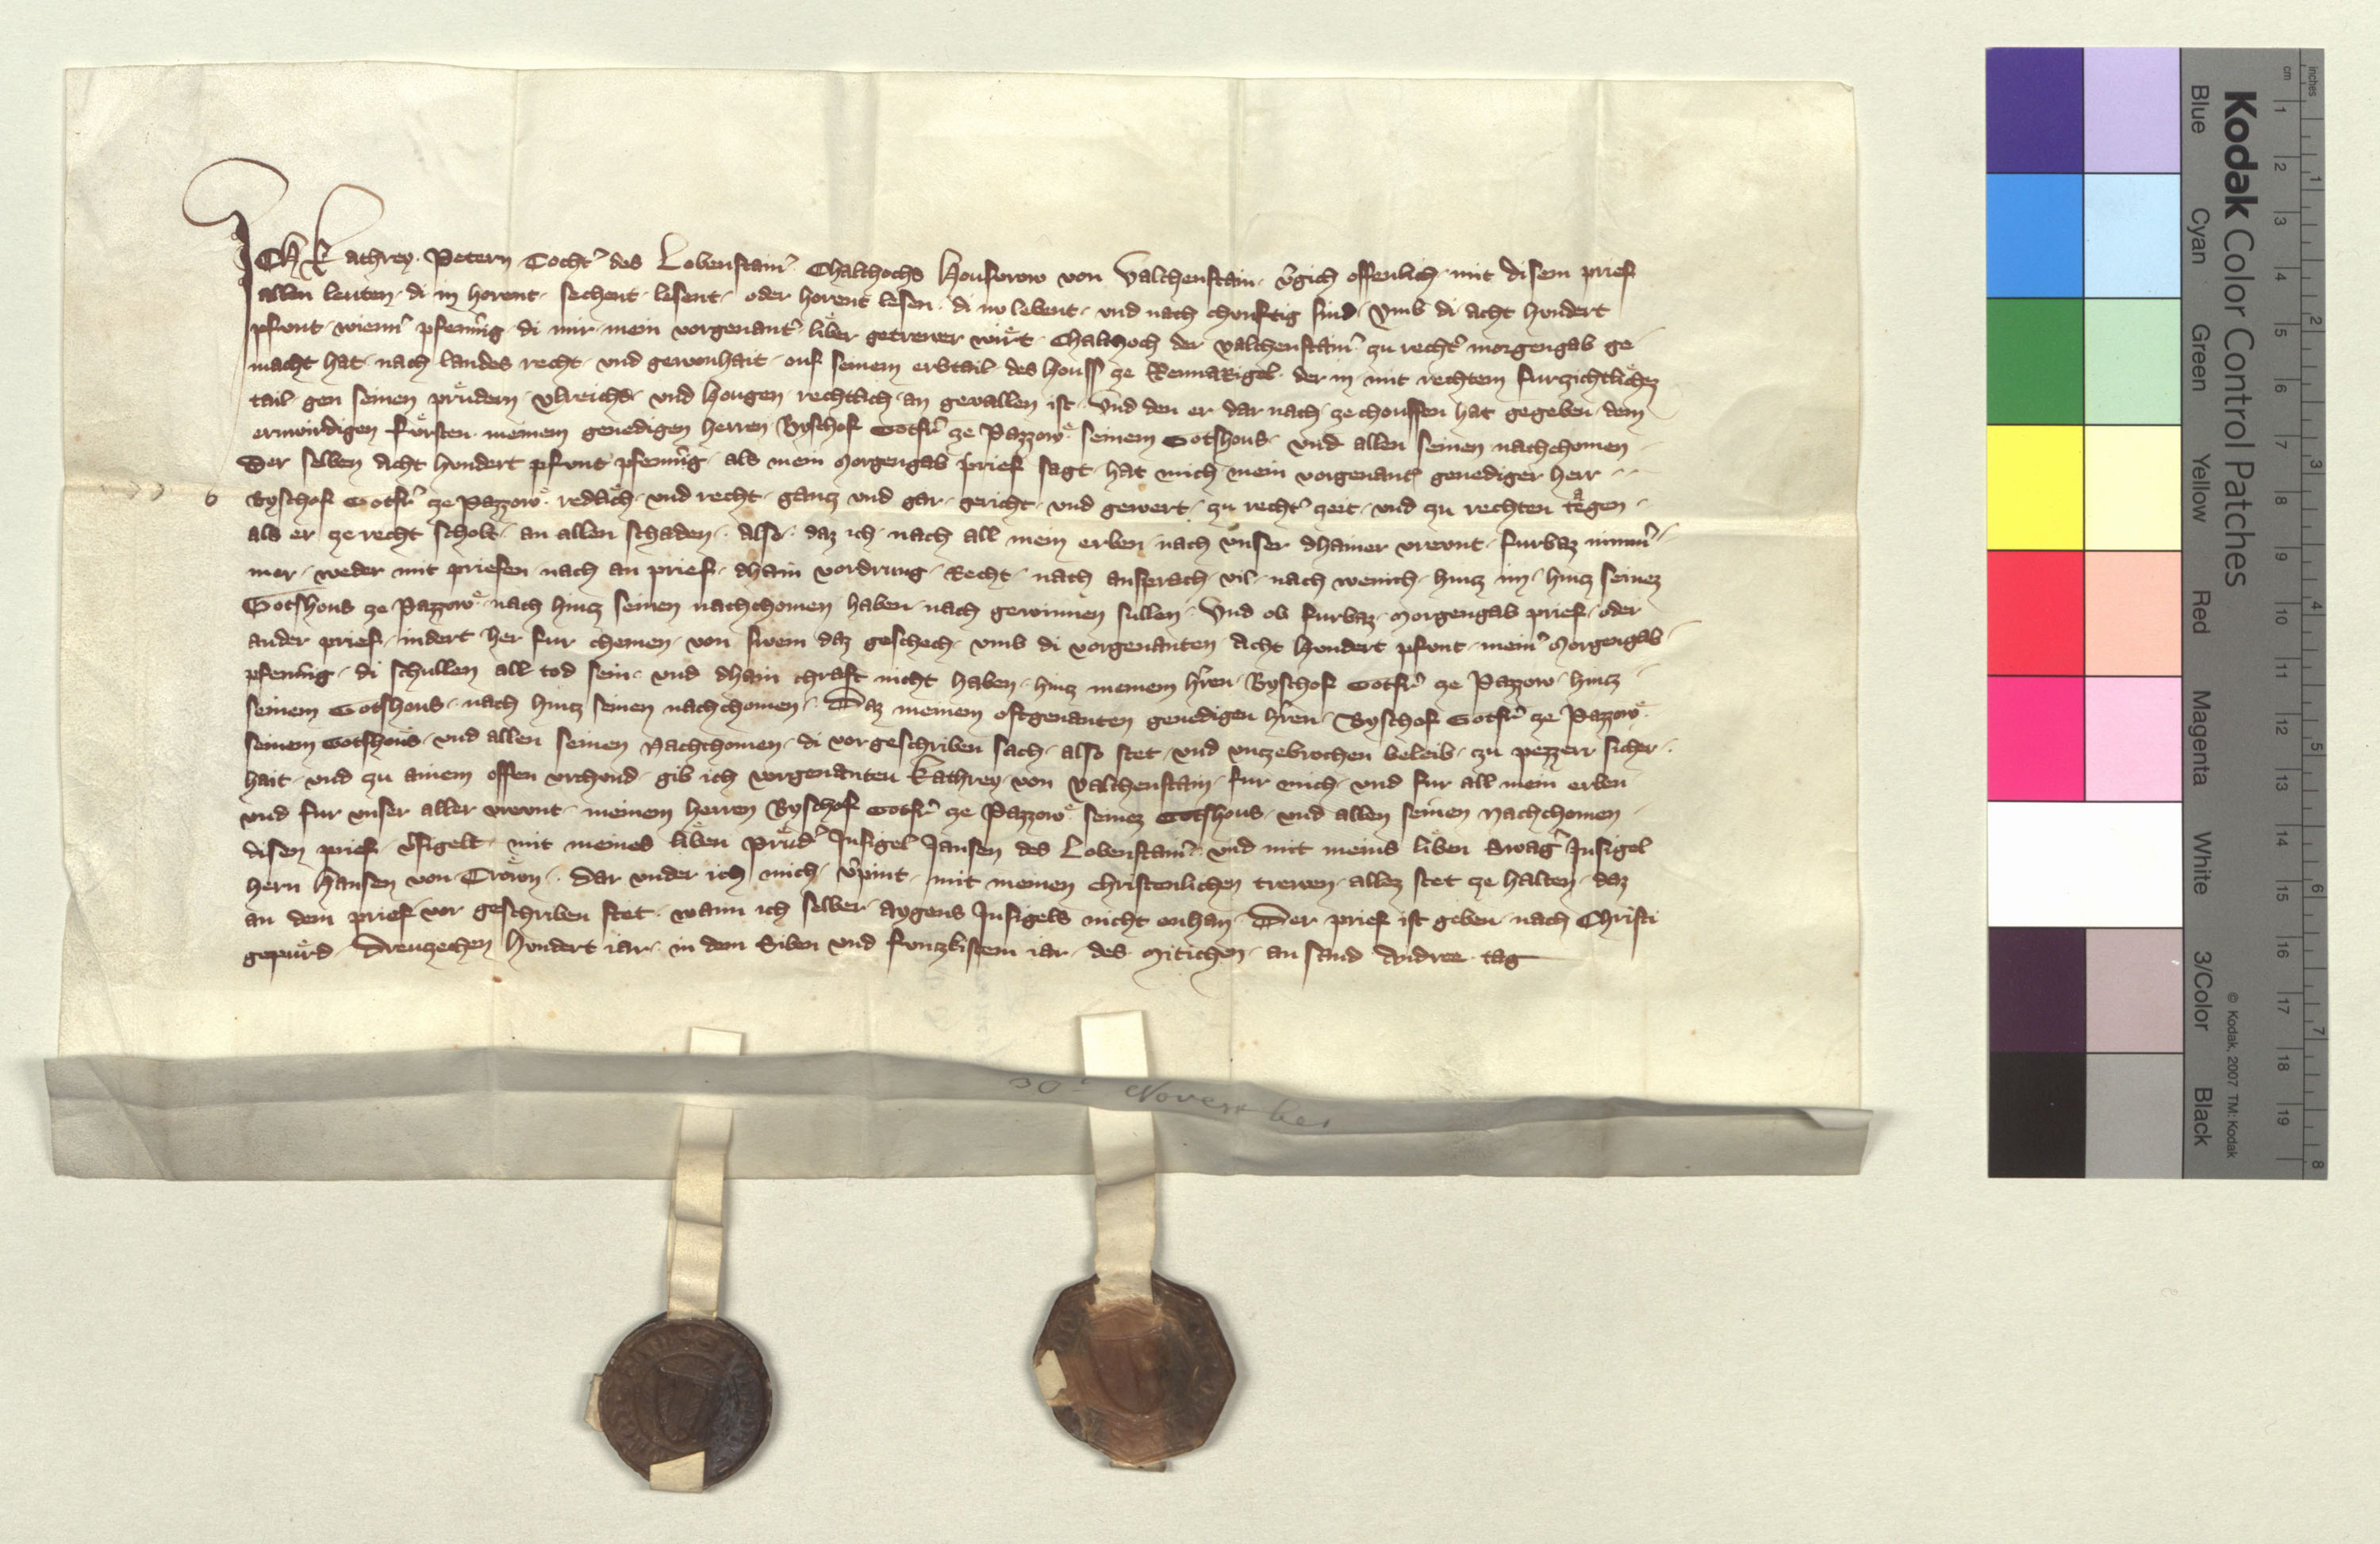 Ich kathrey Petern Tocht(er) des Lobenstain(er) Chalhochs Housvrow von Valchenstain v(er)gich offenlich mit disem prief
allen leuten di in horent sechent lesent oder horent lesen di nv lebent vnd nach chvnftig sind Vmb di acht hvndert
pfvnt wienn(er) pfenni(n)g di mir mein vorgenant(er) lieber getrewer wiert Chalhoch der valchenstain(er) zu recht(er) morgengab ge
macht hat nach landes recht vnd gewonhait ouf seinem erbtail des Houss ze Rennarigel der in mit rechtem furzichtlichez
tail gen seinen prüdern Vlreichs vnd Hougen rechtlich an gevallen ist Vnd den er dar nach ze chouffen hat gegeben dem
erwirdigen fürsten meinem genedigen herren Byschof Gotfr(id) ze Pazzow seinem Gotshous vnd allen seinen nachchomen
Der selben acht hvndert pfvnt pfenni(n)g als mein Morgengab prief sagt hat mich mein vorgenant(er) genediger herr
6 Byschof Gotfr(id) ze Pazzow redlich vnd recht gantz vnd gar gericht vnd gewert zu recht(er) zeit vnd zu rechten tagen
als er ze recht scholt an allen schaden Also daz ich nach all mein erben nach vnser dhainer vrevnt furbaz nimm(er)
mer weder mit priefen nach an prief dhain vordrung Recht nach ansprach vil nach wenich hintz im hintz seinez
Gotshous ze Pazzow nach hintz seinen nachchomen haben nach gewinnen sullen Vnd ob furbaz Morgengab prief oder
ander prief indert her fur chemen von swem daz geschech vmb di vorgenanten Acht Hvndert pfvnt mein(er) Morgengab
pfenni(n)g di schullen all tod sein vnd dhain chraft nicht haben hintz meinem h(er)ren Byschof Gotfr(id) ze Pazzow hintz
seinem Gotshous nach hintz seinen nachchomen Daz meinem oftgenanten genedigen h(er)ren Byschof Gotfr(id) ze Pazzow
seinem Gotshous vnd allen seinen Nachchomen di vorgeschriben sach also stet vnd vnzebrochen beleib zu pezzerr sicher
hait vnd zu ainem offen vrchvnd gib ich vorgenanten kathrey von Valchenstain fur mich vnd fur all mein erben
vnd fur vnser aller vrevnt meinem herren Byschof Gotfr(id) ze Pazzow seinez Gotshous vnd allen seinen Nachchomen
disen prief v(er)sigelt mit meines lieben prüd(er) Insigel Jansen des Lobenstain(er) vnd mit meins lieben Swag(er) Insigel
hern Hansen von Trown Dar vnder ich mich v(er)pint mit meinen christenlichen trewen allez stet ze halten daz
an dem prief vor geschriben stet wann ich selber aygens Insigels nicht enhan Der prief ist geben nach Christi
gepürd Dreuzechen Hvndert iar in dem Siben vnd fvnzkistem iar des Mitichen an sand Andree tag
30t November
Kodak Color Control Patches
© Kodak, 2007 TM: Kodak
Blue Cyan Green Yellow Red Magenta White 3/Color Black
cm 1 2 3 4 5 6 7 8 9 10 11 12 13 14 15 16 17 18 19
inches 1 2 3 4 5 6 7 8